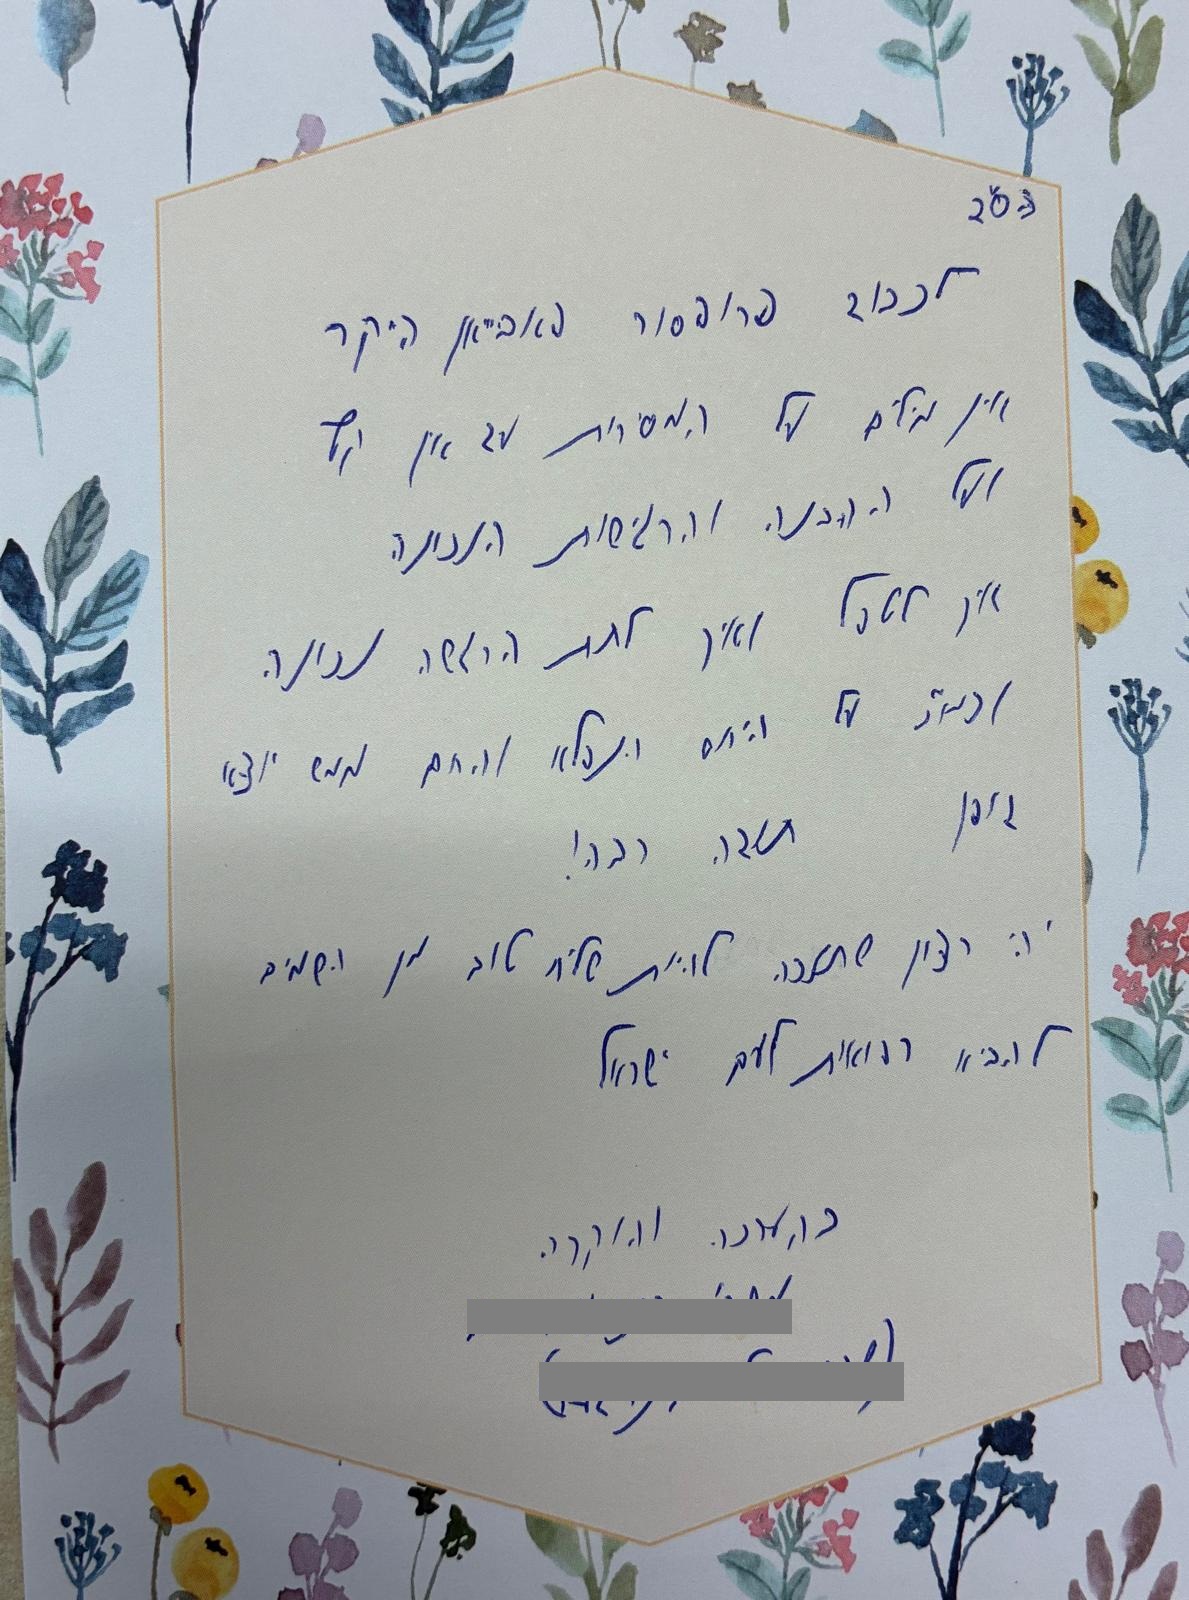 בס"ד
לכבוד פרופסור פאביאן היקר
אין מילים על המסירות עד אין קץ
ועל ההבנה והרגישות הנכונה
איך לטפל ואיך לתת הרגשה נכונה
וכמו"כ על היחס הנפלא והחם ממש יוצא
דופן תודה רבה!
יהי רצון שתזכה להיות שליח טוב מן השמים
להביא רפואות לעם ישראל
בהערכה והוקרה